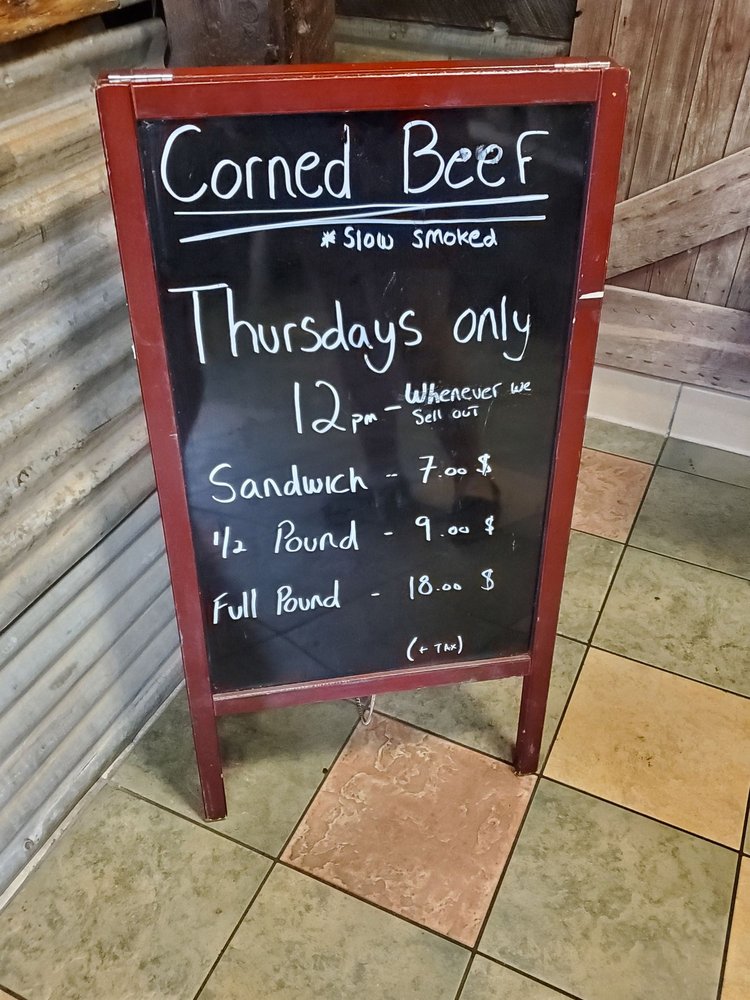 Corned Beef
* Slow smoked
Thursdays only
12 pm - Whenever we
Sell out
Sandwich - 7.00 $
1/2 Pound - 9.00 $
Full Pound - 18.00 $
(+ TAX)